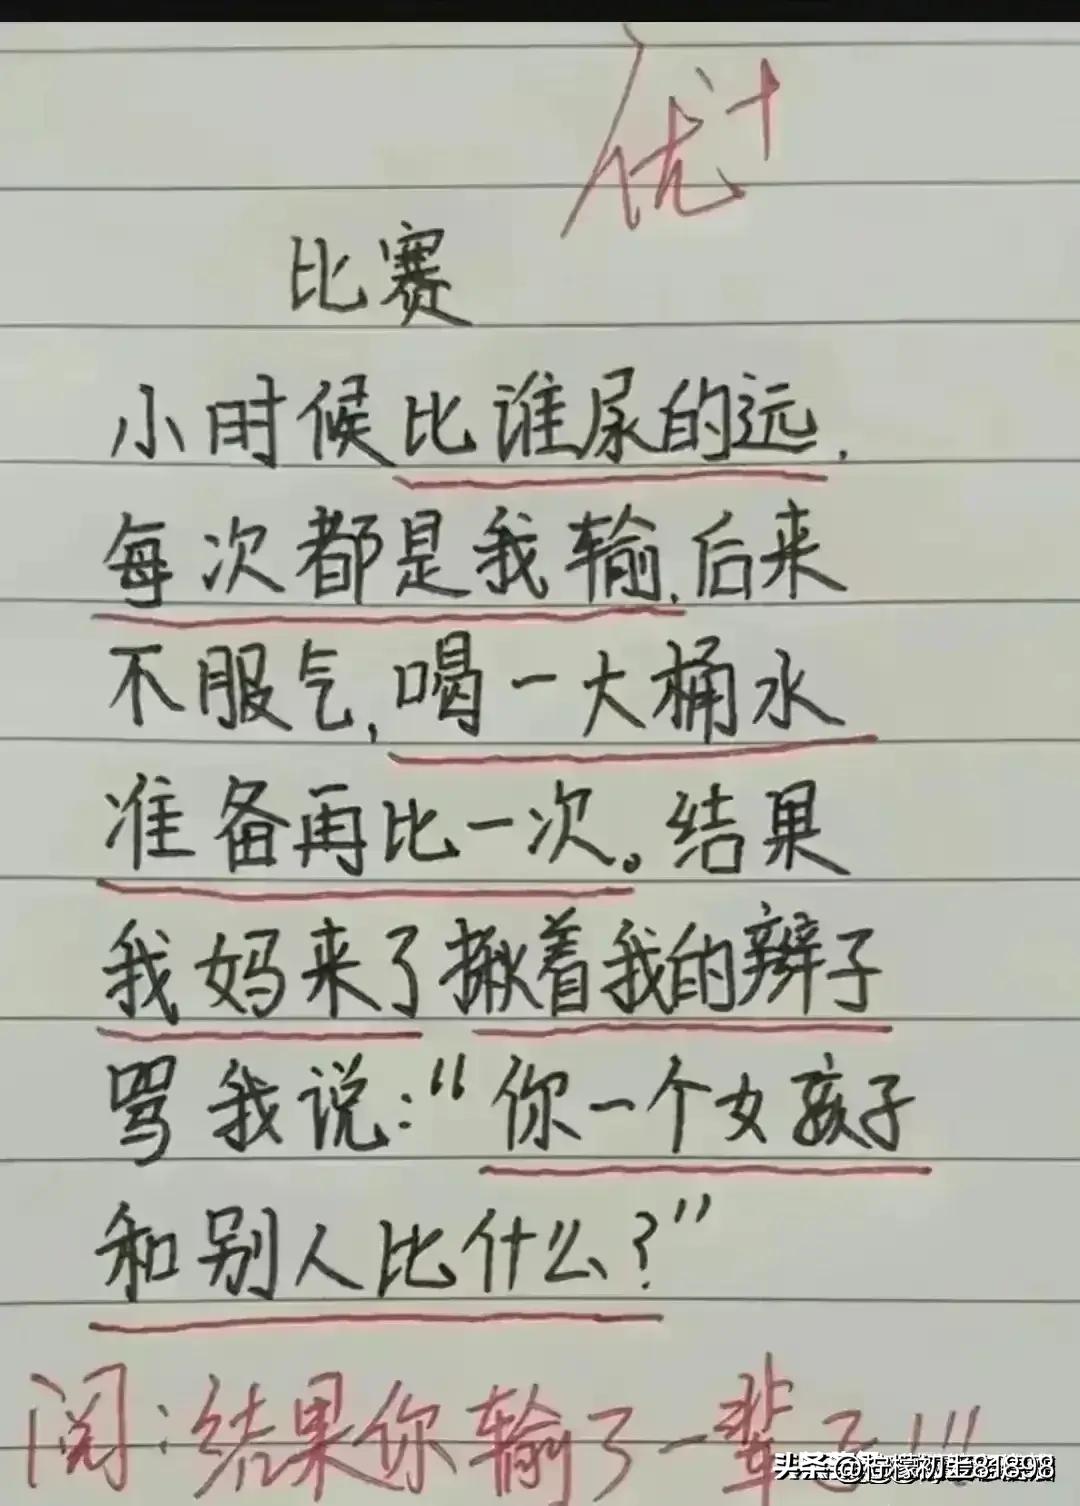 优+
比赛
小时候比谁尿的远，
每次都是我输，后来
不服气，喝一大桶水
准备再比一次。结果
我妈来了揪着我的辫子
骂我说：“你一个女孩子
和别人比什么？”
阅：结果你输了一辈子!!!
头条@柠檬初